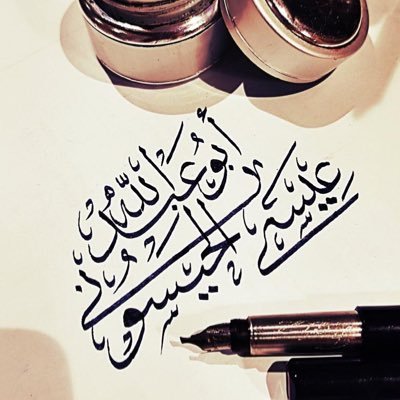 أبو عبد الله
عيسى الحيسوني